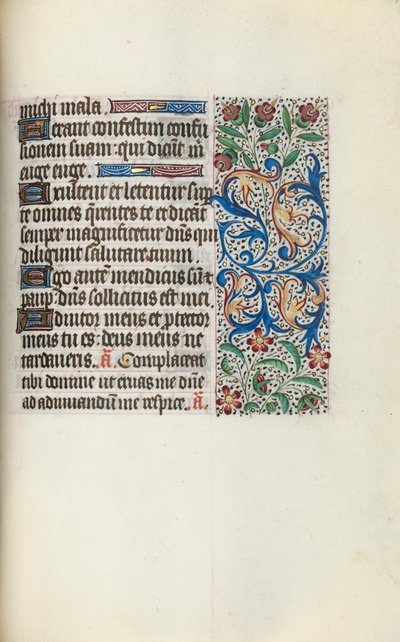 michi mala.
Ferant confestim confu
sionem suam: qui dicūt m
euge euge.
Exultent et letentur sup
te omnes qrentes te et dicāt
semper magnificetur dn̄s qui
diligunt salutare tuum.
Ego autē mendicus sū et
paup: dn̄s sollicitus est mei
Adiutor meus et ptector
meus tu es: deus meus ne
tardaueris. a. Complaceat
tibi domine ut eruas me dn̄e
ad adiuuandum me respice. a.